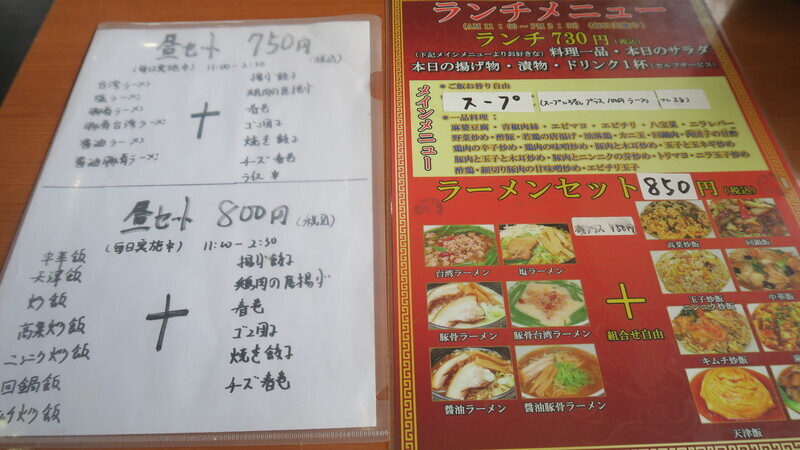 昼セット 750円(税込)
(毎日実施中) 11:00-2:30
台湾ラーメン
塩ラーメン
豚骨ラーメン
豚骨台湾ラーメン
醤油ラーメン
醤油豚骨ラーメン
+
揚げ餃子
鶏肉の唐揚げ
春巻
ゴマ団子
焼き餃子
チーズ春巻
昼セット 800円(税込)
(毎日実施中) 11:00-2:30
中華飯
天津飯
炒飯
高菜炒飯
ニンニク炒飯
回鍋飯
キムチ炒飯
+
揚げ餃子
鶏肉の唐揚げ
春巻
ゴマ団子
焼き餃子
チーズ春巻
ランチメニュー
ランチ 730円(税込)
(下記メインメニューよりお好きな) 料理一品・本日のサラダ
本日の揚げ物・漬物・ドリンク1杯(セルフサービス)
メインメニュー
*ご飯お替り自由
スープ
*一品料理:
麻婆豆腐・青椒肉絲・エビマヨ・エビチリ・八宝菜・ニラレバー
野菜炒め・酢豚・若鶏の唐揚げ・油淋鶏・カニ玉・回鍋肉・肉団子の甘酢
鶏肉の辛子炒め・鶏肉の味噌炒め・豚肉と木耳炒め・玉子と玉ネギ炒め
豚肉と玉子と木耳炒め・豚肉とニンニクの芽炒め・トリマヨ・ニラ玉子炒め
酢鶏・細切り豚肉の甘味噌炒め・エビチリ玉子
ラーメンセット 850円(税込)
台湾ラーメン
塩ラーメン
豚骨ラーメン
豚骨台湾ラーメン
醤油ラーメン
醤油豚骨ラーメン
+
組合せ自由
高菜炒飯
回鍋飯
玉子炒飯
中華飯
ニンニク炒飯
キムチ炒飯
天津飯